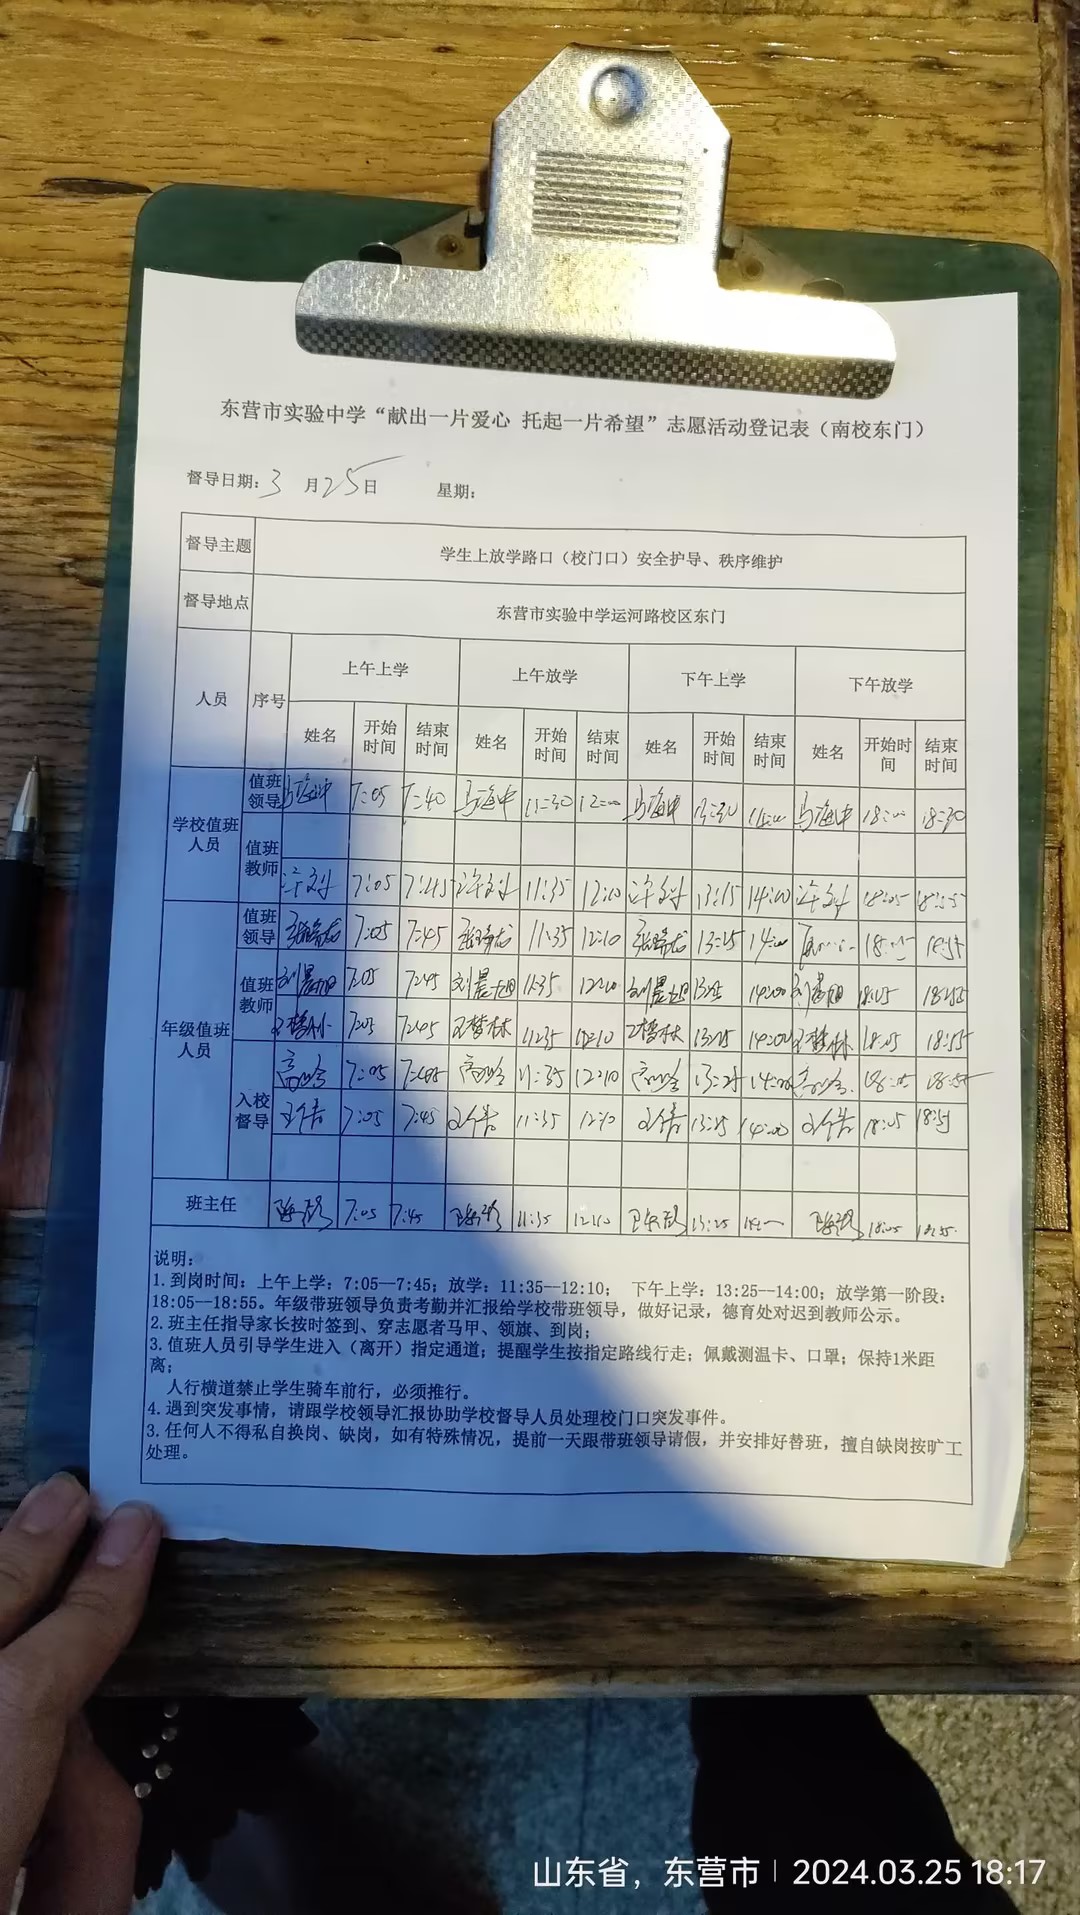 东营市实验中学“献出一片爱心 托起一片希望”志愿活动登记表（南校东门）
督导日期：3 月25日 星期：
督导主题 学生上放学路口（校门口）安全护导、秩序维护
督导地点 东营市实验中学运河路校区东门
人员 序号 上午上学 上午放学 下午上学 下午放学
姓名 开始时间 结束时间 姓名 开始时间 结束时间 姓名 开始时间 结束时间 姓名 开始时间 结束时间
学校值班人员
值班领导 马海中 7:05 7:40 马海中 11:30 12:00 马海中 马海中 18:00 18:30
值班教师
7:05 7:45 11:35 12:10 13:15 14:00 18:05 18:55
年级值班人员
值班领导 7:05 7:45 11:35 12:10 13:25 14:00 18:55
值班教师 刘晨旭 7:05 7:45 刘晨旭 11:35 12:10 刘晨旭 13:25 14:00 刘晨旭 18:05
王梦林 7:05 7:45 王梦林 11:35 12:10 王梦林 13:25 14:00 王梦林 18:05 18:55
入校督导 7:05 7:45 11:35 12:10 13:25 14:00 18:05 18:55
7:05 7:45 11:35 12:10 13:25 14:00 18:05 18:55
班主任 7:05 7:45 11:35 12:10 13:25 18:05 18:55
说明：
1. 到岗时间：上午上学：7:05—7:45；放学：11:35—12:10； 下午上学：13:25—14:00；放学第一阶段：
18:05—18:55。年级带班领导负责考勤并汇报给学校带班领导，做好记录，德育处对迟到教师公示。
2. 班主任指导家长按时签到、穿志愿者马甲、领旗、到岗；
3. 值班人员引导学生进入（离开）指定通道；提醒学生按指定路线行走；佩戴测温卡、口罩；保持1米距
离；
人行横道禁止学生骑车前行，必须推行。
4. 遇到突发事情，请跟学校领导汇报协助学校督导人员处理校门口突发事件。
3. 任何人不得私自换岗、缺岗，如有特殊情况，提前一天跟带班领导请假，并安排好替班，擅自缺岗按旷工
处理。
山东省，东营市 | 2024.03.25 18:17